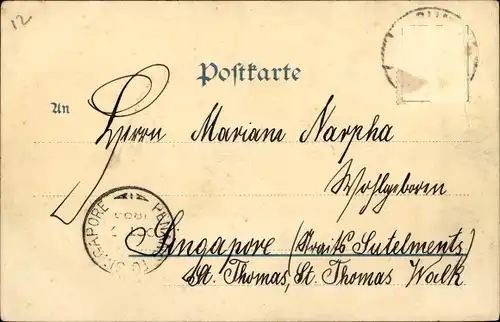 12
Postkarte
An
Herrn Mariam Narpha
Wohlgeboren
Singapore (Traits Sutelments)
St. Thomas, St. Thomas Walk
SINGAPORE